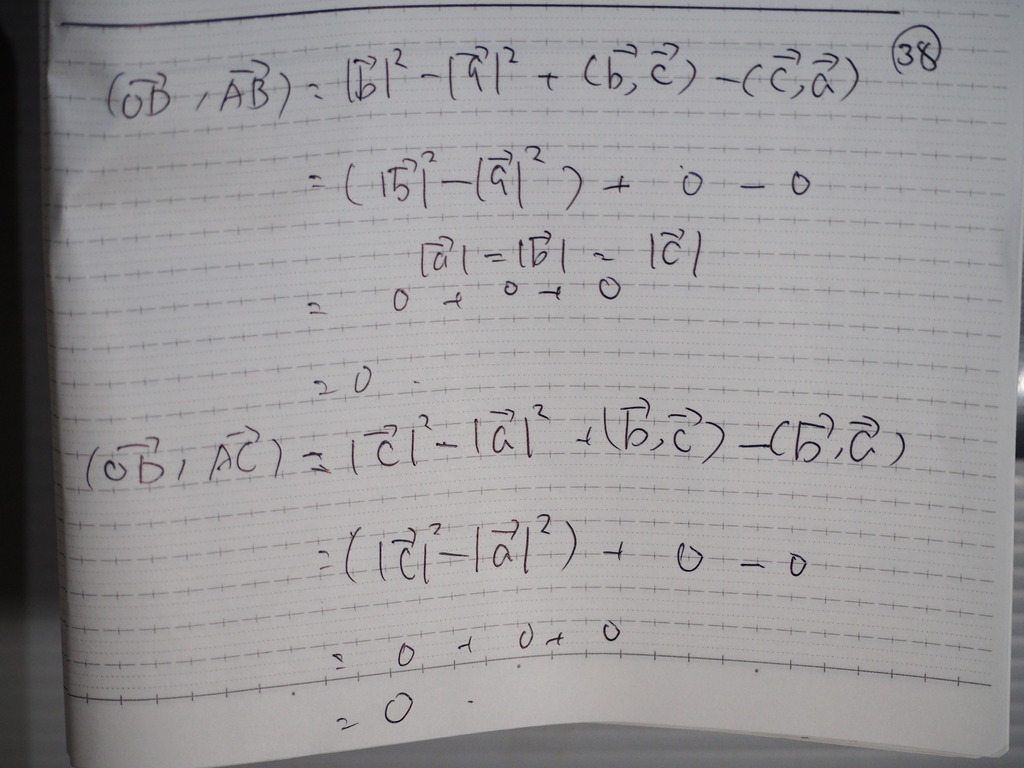 (OB⃗, AB⃗) = |b⃗|² - |a⃗|² + (b⃗, c⃗) - (c⃗, a⃗) ㊳
= (|b⃗|² - |a⃗|²) + 0 - 0
|a⃗| = |b⃗| = |c⃗|
= 0 + 0 + 0
= 0.
(OB⃗, AC⃗) = |c⃗|² - |a⃗|² + (b⃗, c⃗) - (b⃗, a⃗)
= (|c⃗|² - |a⃗|²) + 0 - 0
= 0 + 0 + 0
= 0.